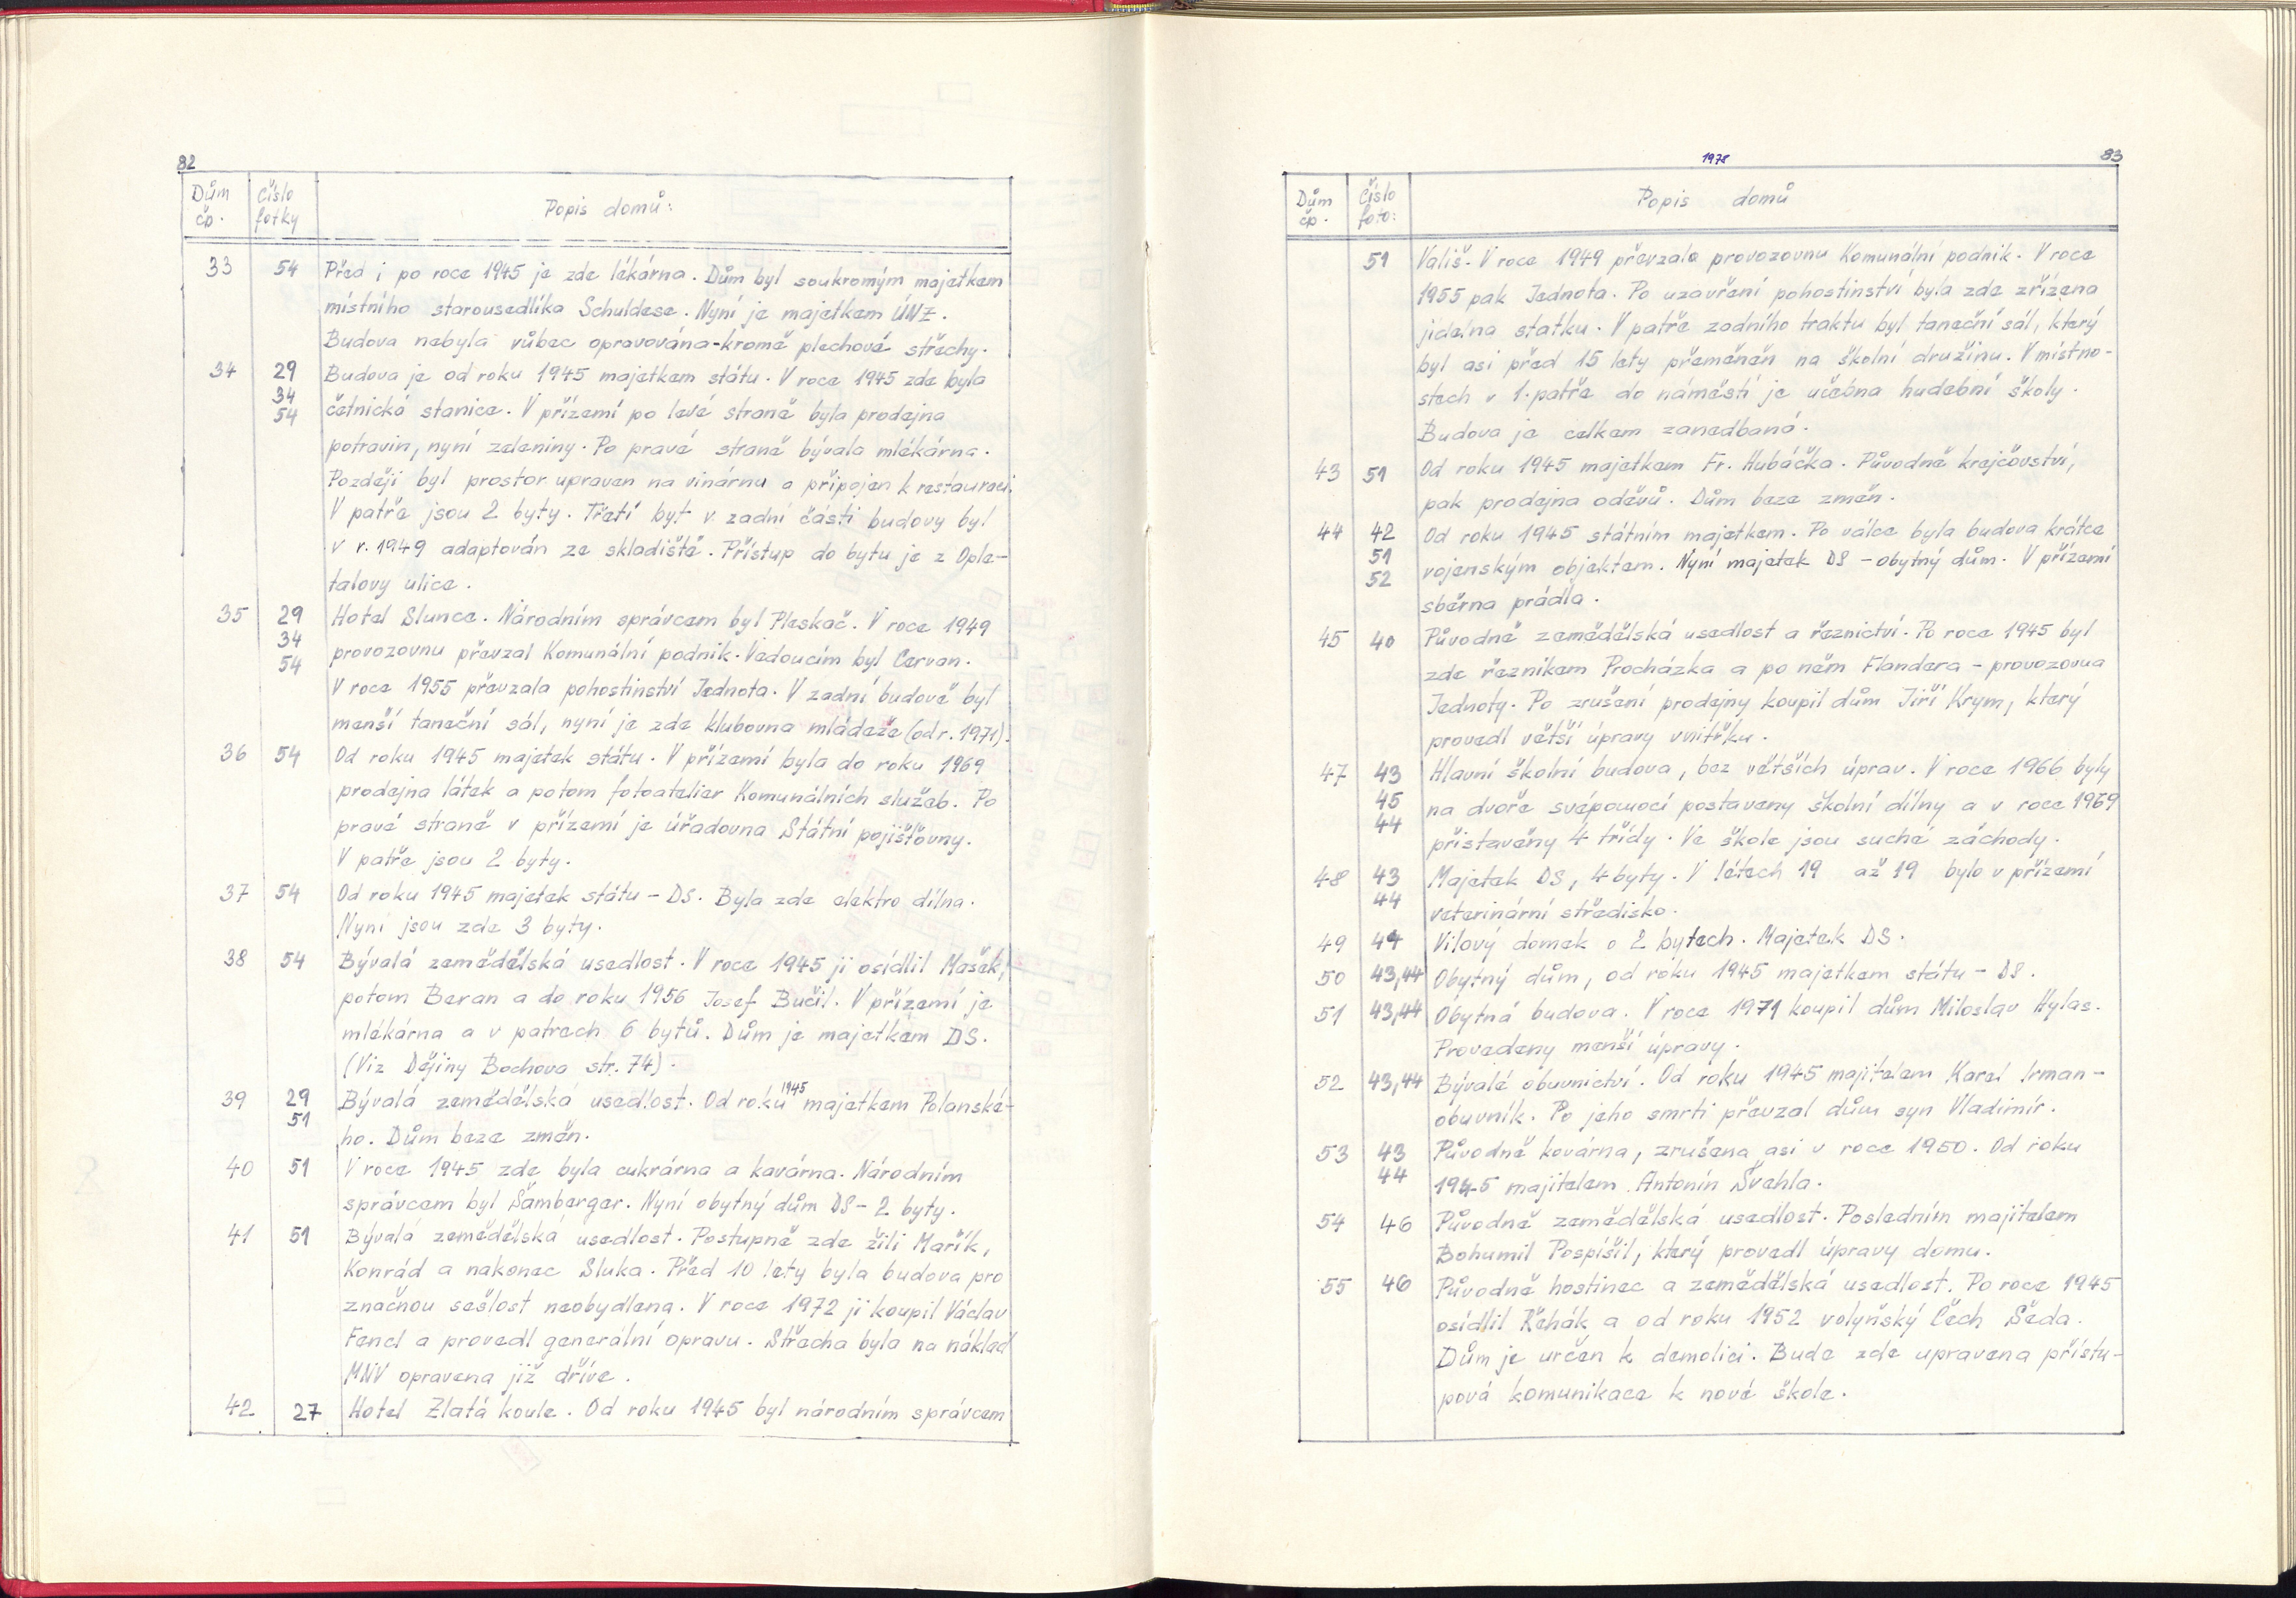 82
Dům čp. Číslo fotky Popis domů:
33 54 Před i po roce 1945 je zde lékárna. Dům byl soukromým majetkem
místního starousedlíka Schuldese. Nyní je majetkem ÚNZ.
Budova nebyla vůbec opravována-kromě plechové střechy.
34 29 Budova je od roku 1945 majetkem státu. V roce 1945 zde byla
34
54 četnická stanice. V přízemí po levé straně byla prodejna
potravin, nyní zeleniny. Po pravé straně bývala mlékárna.
Později byl prostor upraven na vinárnu a připojen k restauraci.
V patře jsou 2 byty. Třetí byt v zadní části budovy byl
v r. 1949 adaptován ze skladiště. Přístup do bytu je z Ople-
talovy ulice.
35 29 Hotel Slunce. Národním správcem byl Pleskač. V roce 1949
34
54 provozovnu převzal Komunální podnik. Vedoucím byl Červan.
V roce 1955 převzala pohostinství Jednota. V zadní budově byl
menší taneční sál, nyní je zde klubovna mládeže (od r. 1971).
36 54 Od roku 1945 majetek státu. V přízemí byla do roku 1969
prodejna látek a potom fotoatelier Komunálních služeb. Po
pravé straně v přízemí je úřadovna Státní pojišťovny.
V patře jsou 2 byty.
37 54 Od roku 1945 majetek státu - DS. Byla zde elektro dílna.
Nyní jsou zde 3 byty.
38 54 Bývalá zemědělská usedlost. V roce 1945 ji osídlil Mašek,
potom Beran a do roku 1956 Josef Bučil. V přízemí je
mlékárna a v patrech 6 bytů. Dům je majetkem DS.
(Viz Dějiny Bochova str. 74).
39 29 Bývalá zemědělská usedlost. Od roku 1945 majetkem Polanské-
51 ho. Dům beze změn.
40 51 V roce 1945 zde byla cukrárna a kavárna. Národním
správcem byl Šamberger. Nyní obytný dům DS - 2 byty.
41 51 Bývalá zemědělská usedlost. Postupně zde žili Mařík,
Konrád a nakonec Sluka. Před 10 lety byla budova pro
značnou sešlost neobydlena. V roce 1972 ji koupil Václav
Fencl a provedl generální opravu. Střecha byla na náklad
MNV opravena již dříve.
42 27 Hotel Zlatá koule. Od roku 1945 byl národním správcem
1978 83
Dům čp. Číslo foto: Popis domů
51 Vališ. V roce 1949 převzala provozovnu Komunální podnik. V roce
1955 pak Jednota. Po uzavření pohostinství byla zde zřízena
jídelna statku. V patře zadního traktu byl taneční sál, který
byl asi před 15 lety přeměněn na školní družinu. V místno-
stech v 1. patře do náměstí je učebna hudební školy.
Budova je celkem zanedbaná.
43 51 Od roku 1945 majetkem Fr. Hubáčka. Původně krejčovství,
pak prodejna oděvů. Dům beze změn.
44 42 Od roku 1945 státním majetkem. Po válce byla budova krátce
51
52 vojenským objektem. Nyní majetek DS - obytný dům. V přízemí
sběrna prádla.
45 40 Původně zemědělská usedlost a řeznictví. Po roce 1945 byl
zde řezníkem Procházka a po něm Flandera - provozovna
Jednoty. Po zrušení prodejny koupil dům Jiří Krym, který
provedl větší úpravy vnitřku.
47 43 Hlavní školní budova, bez větších úprav. V roce 1966 byly
45 na dvoře svépomocí postaveny školní dílny a v roce 1969
44
přistavěny 4 třídy. Ve škole jsou suché záchody.
48 43 Majetek DS, 4 byty. V létech 19 až 19 bylo v přízemí
44 veterinární středisko.
49 44 Vilový domek o 2 bytech. Majetek DS.
50 43,44 Obytný dům, od roku 1945 majetkem státu - DS.
51 43,44 Obytná budova. V roce 1971 koupil dům Miloslav Hylas.
Provedeny menší úpravy.
52 43,44 Bývalé obuvnictví. Od roku 1945 majitelem Karel Irman -
obuvník. Po jeho smrti převzal dům syn Vladimír.
53 43 Původně kovárna, zrušena asi v roce 1950. Od roku
44 1945 majitelem Antonín Švehla.
54 46 Původně zemědělská usedlost. Posledním majitelem
Bohumil Pospíšil, který provedl úpravy domu.
55 46 Původně hostinec a zemědělská usedlost. Po roce 1945
osídlil Řehák a od roku 1952 volyňský Čech Šeda.
Dům je určen k demolici. Bude zde upravena přístu-
pová komunikace k nové škole.